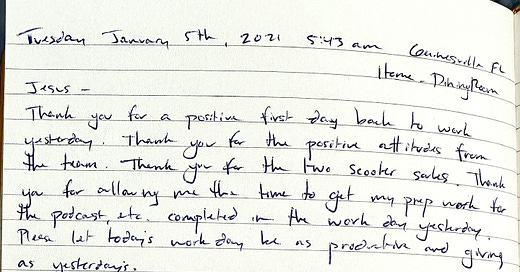 Tuesday January 5th, 2021 5:43 am Gainesville FL
Home - Dining Room
Jesus -
Thank you for a positive first day back to work
yesterday. Thank you for the positive attitudes from
the team. Thank you for the two scooter sales. Thank
you for allowing me the time to get my prep work for
the podcast, etc. completed in the work day yesterday.
Please let today's work day be as productive and giving
as yesterday's.